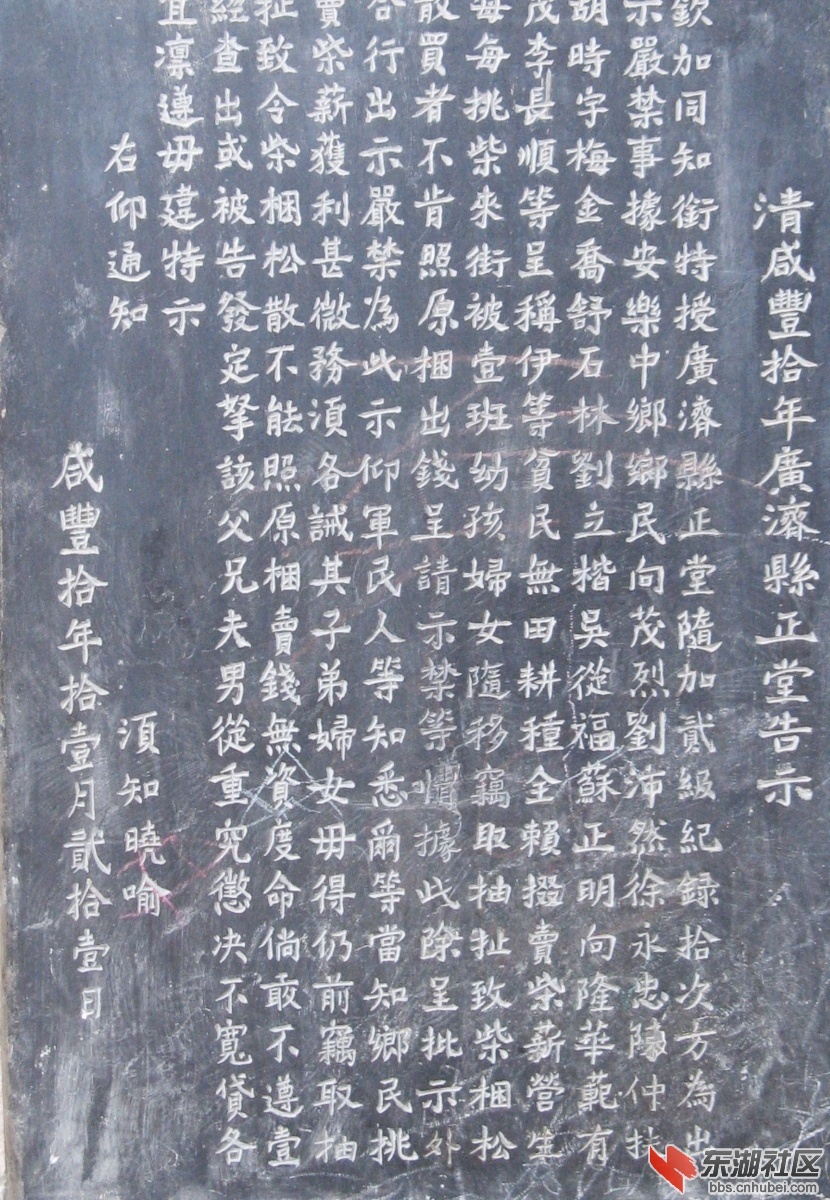 清咸豐拾年廣濟縣正堂告示
欽加同知銜特授廣濟縣正堂隨加貳級紀錄拾次方為出
示嚴禁事據安樂中鄉鄉民向茂烈劉沛然徐永忠陳仲扶
胡時字梅金喬舒石林劉立楷吳從福蘇正明向隆華範有
茂李長順等呈稱伊等貧民無田耕種全賴掇賣柴薪營生
每每挑柴來街被壹班幼孩婦女隨移竊取抽扯致柴梱松
散買者不肯照原梱出錢呈請示禁等情據此除呈批示外
合行出示嚴禁為此示仰軍民人等知悉爾等當知鄉民挑
賣柴薪獲利甚微務須各誡其子弟婦女毋得仍前竊取抽
扯致令柴梱松散不能照原梱賣錢無資度命倘敢不遵壹
經查出或被告發定拏該父兄夫男從重究懲決不寬貸各
宜凛遵毋違特示
右仰通知
須知曉喻
咸豐拾年拾壹月貳拾壹日
东湖社区
bbs.cnhubei.com